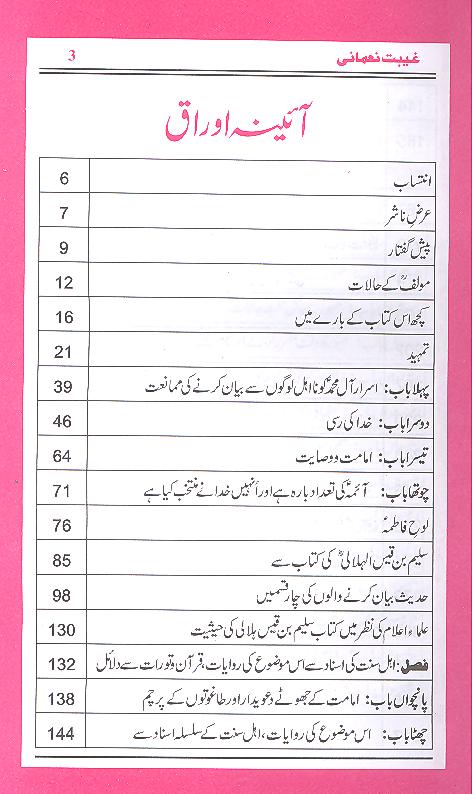 غیبت نعمانی 3
آئینہ اوراق
انتساب 6
عرضِ ناشر 7
پیش گفتار 9
مولفؒ کے حالات 12
کچھ اس کتاب کے بارے میں 16
تمہید 21
پہلا باب: اسرار آل محمدؐ کو نا اہل لوگوں سے بیان کرنے کی ممانعت 39
دوسرا باب: خدا کی رسی 46
تیسرا باب: امامت و وصایت 64
چوتھا باب: آئمہؑ کی تعداد بارہ ہے اور اُنہیں خدا نے منتخب کیا ہے 71
لوح فاطمہؑ 76
سلیم بن قیس الہلالیؒ کی کتاب سے 85
حدیث بیان کرنے والوں کی چار قسمیں 98
علماءِ اعلام کی نظر میں کتاب سلیم بن قیس ہلالی کی حیثیت 130
فصل: اہل سنت کی اسناد سے اس موضوع کی روایات، قرآن و تورات سے دلائل 132
پانچواں باب: امامت کے جھوٹے دعویدار اور طاغوتوں کے پرچم 138
چھٹا باب: اس موضوع کی روایات، اہل سنت کے سلسلہ اسناد سے 144